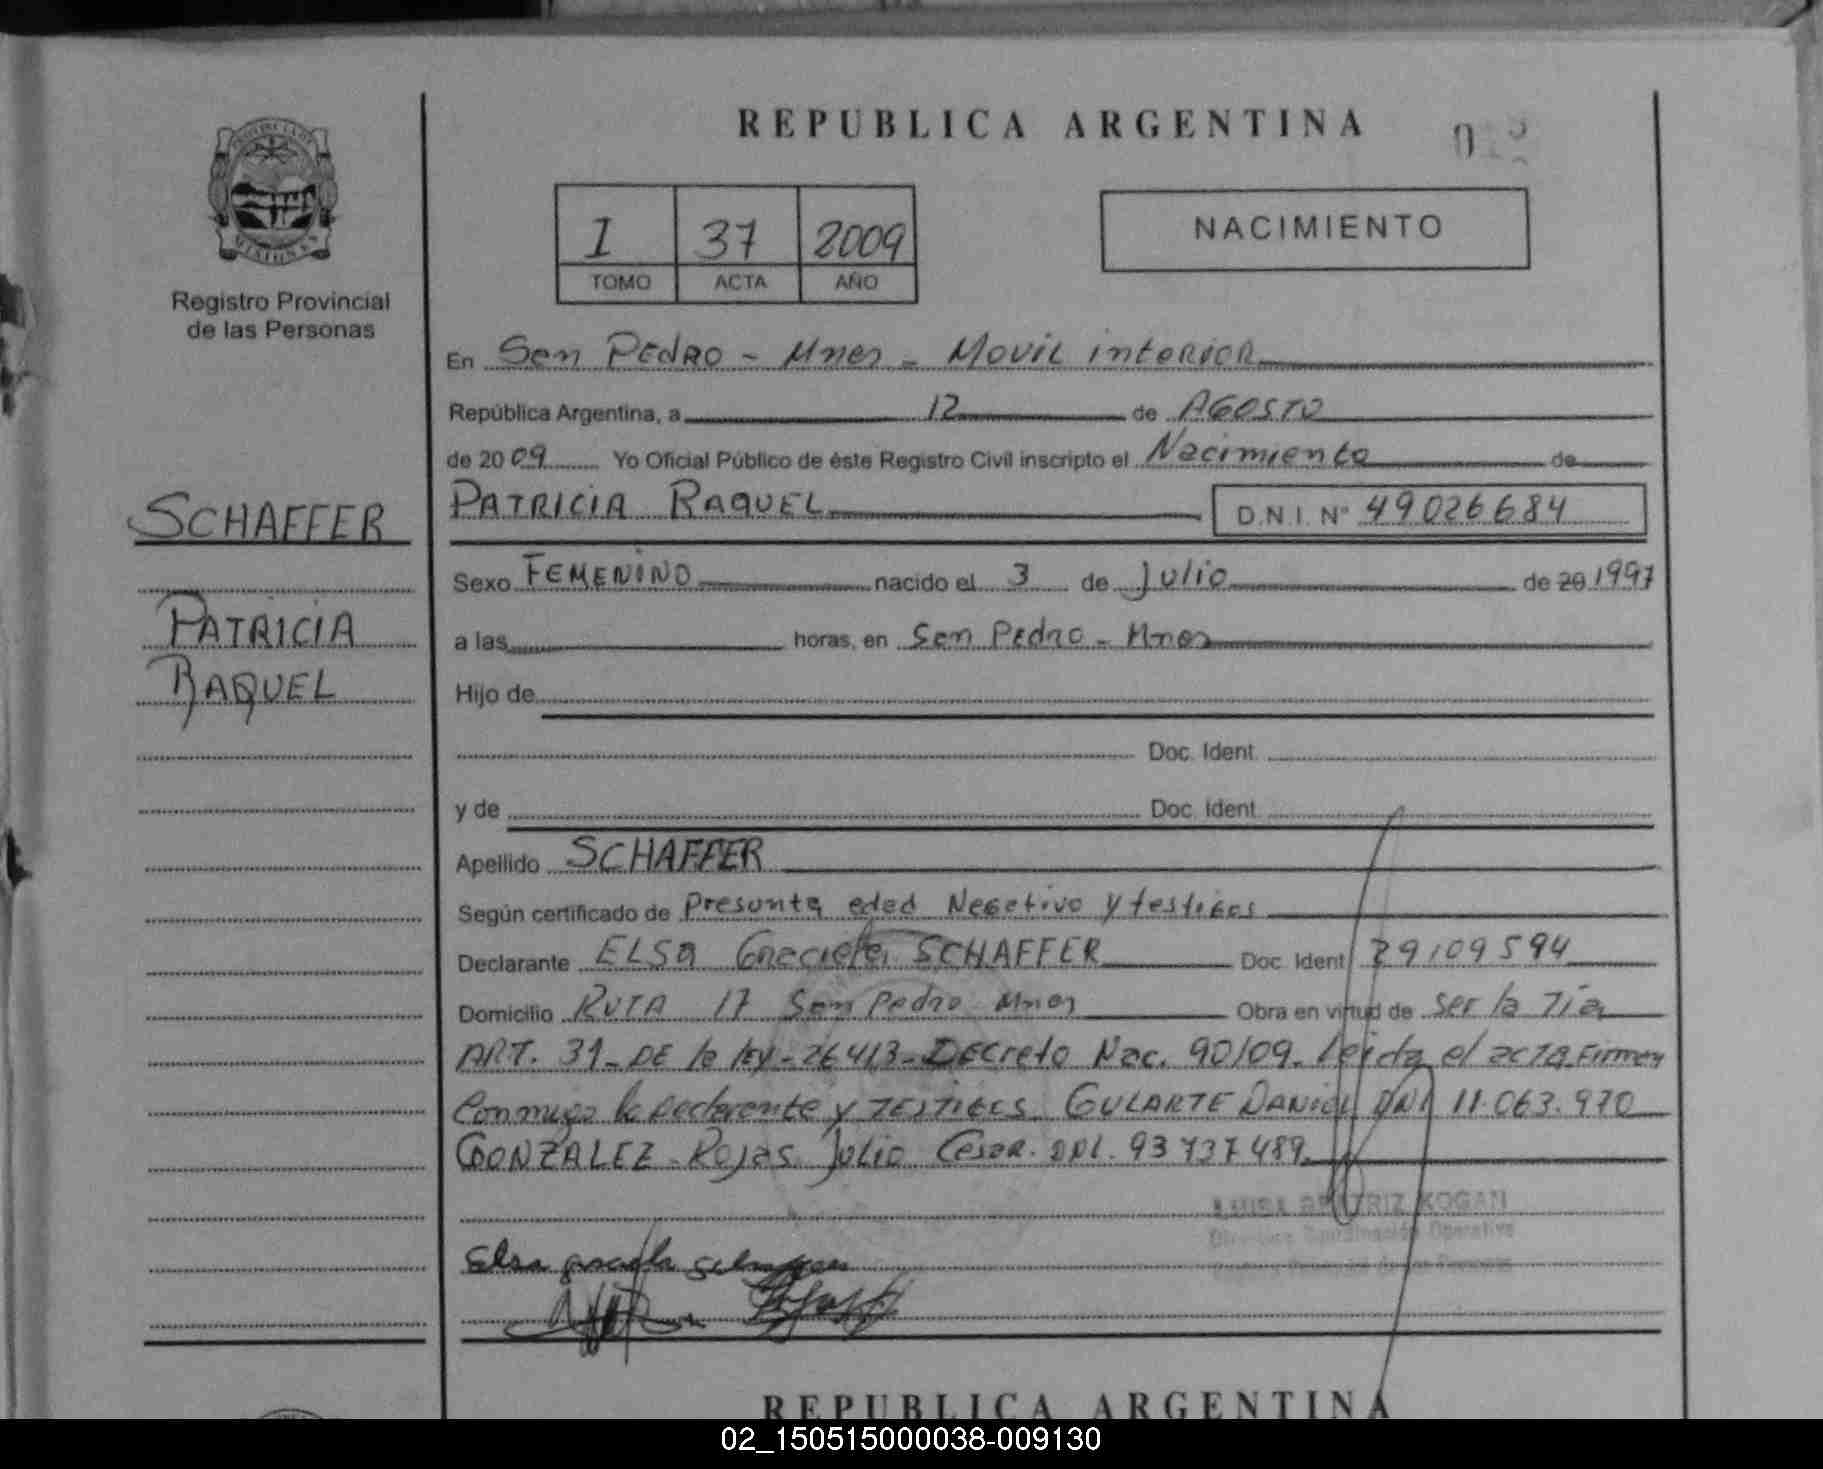 REPUBLICA ARGENTINA
I 37 2009
TOMO ACTA AÑO
NACIMIENTO
MISIONES
Registro Provincial
de las Personas
SCHAFFER
PATRICIA
RAQUEL
En San PEDRO - Mnes - Movil interior
República Argentina, a 12 de AGOSTO
de 20 09 Yo Oficial Público de éste Registro Civil inscripto el Nacimiento de
PATRICIA RAQUEL D.N.I. Nº 49026684
Sexo FEMENINO nacido el 3 de Julio de 20 1997
a las horas, en San Pedro - Mnes
Hijo de
Doc. Ident.
y de Doc. Ident.
Apellido SCHAFFER
Según certificado de Presunta edad Negativo y testigos
Declarante ELSA Graciela SCHAFFER Doc. Ident. 29109594
Domicilio RUTA 17 San Pedro Mnes Obra en virtud de ser la Tía
ART. 31 - DE la ley - 26413 - Decreto Nac. 90/09. Leída el acta Firman
Conmigo la Declarante y TESTIGOS GULARTE DANIEL DNI 11.063.970
GONZALEZ - Rojas Julio Cesar. DNI. 93737489
LUISA BEATRIZ KOGAN
Operativa
Elsa graciela
REPUBLICA ARGENTINA
02_150515000038-009130